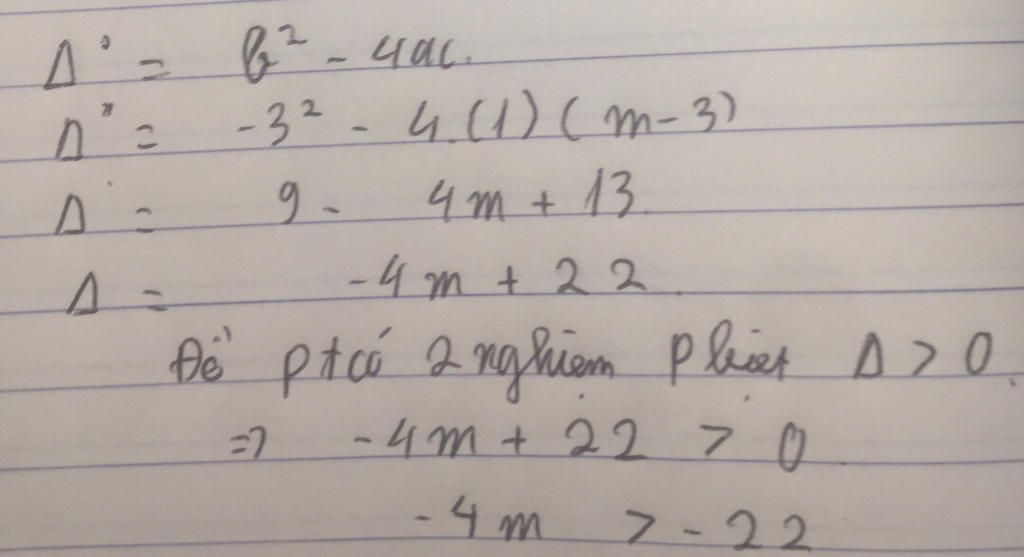 Δ' = b² - 4ac.
Δ' = -3² - 4.(1)(m-3)
Δ = 9 - 4m + 13
Δ = -4m + 22.
Để pt có 2 nghiệm p biệt Δ > 0.
=> -4m + 22 > 0
-4m > -22